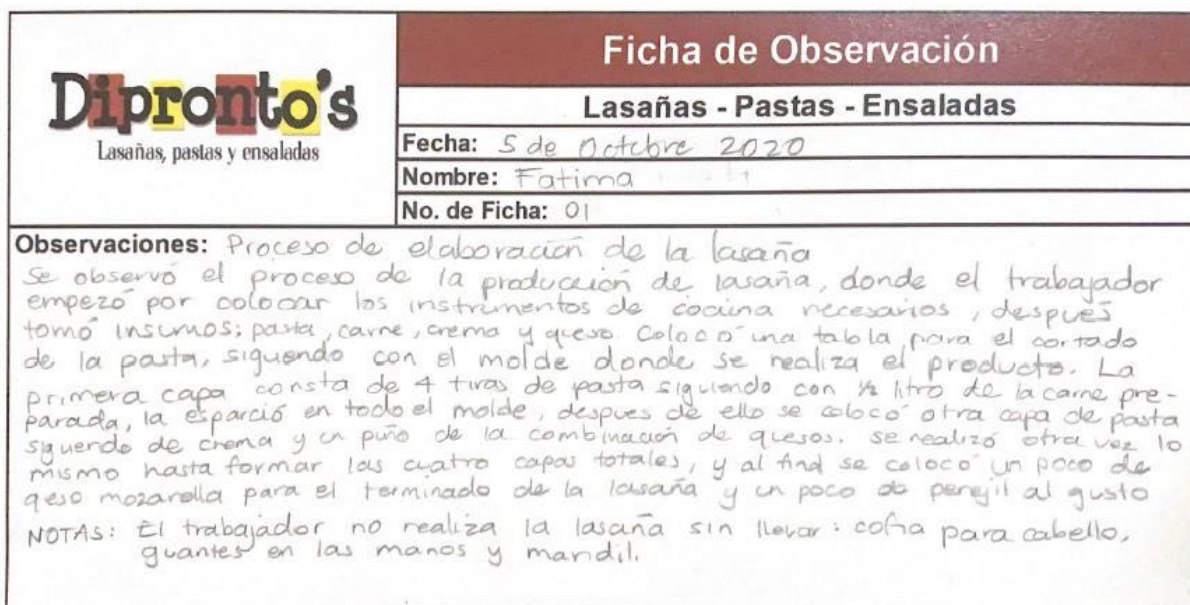 Dipronto's
Lasañas, pastas y ensaladas
Ficha de Observación
Lasañas - Pastas - Ensaladas
Fecha: 5 de Octubre 2020
Nombre: Fatima
No. de Ficha: 01
Observaciones: Proceso de elaboración de la lasaña
Se observó el proceso de la producción de lasaña, donde el trabajador
empezó por colocar los instrumentos de cocina necesarios, después
tomó insumos; pasta, carne, crema y queso. Colocó una tabla para el cortado
de la pasta, siguendo con el molde donde se realiza el producto. La
primera capa consta de 4 tiras de pasta siguiendo con ½ litro de la carne pre-
parada, la esparció en todo el molde, despues de ello se colocó otra capa de pasta
siguendo de crema y un puño de la combinación de quesos. se realizó otra vez lo
mismo hasta formar las cuatro capas totales, y al final se colocó un poco de
qeso mozarella para el terminado de la lasaña y un poco de perejil al gusto
NOTAS: El trabajador no realiza la lasaña sin llevar: cofia para cabello,
guantes en las manos y mandil.